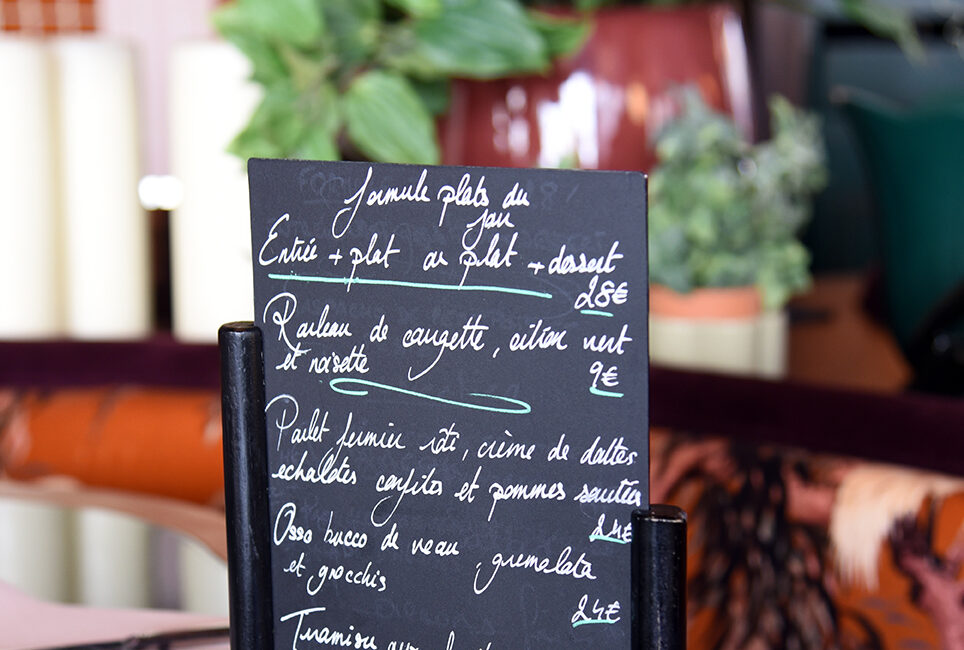 Formule plats du
jour
Entrée + plat ou plat + dessert
28€
Rouleau de courgette, citron vert
et noisette
9€
Poulet fermier rôti, crème de dattes
echalotes confites et pommes sautées
24€
Osso bucco de veau gremolata
et gnocchis
24€
Tiramisu